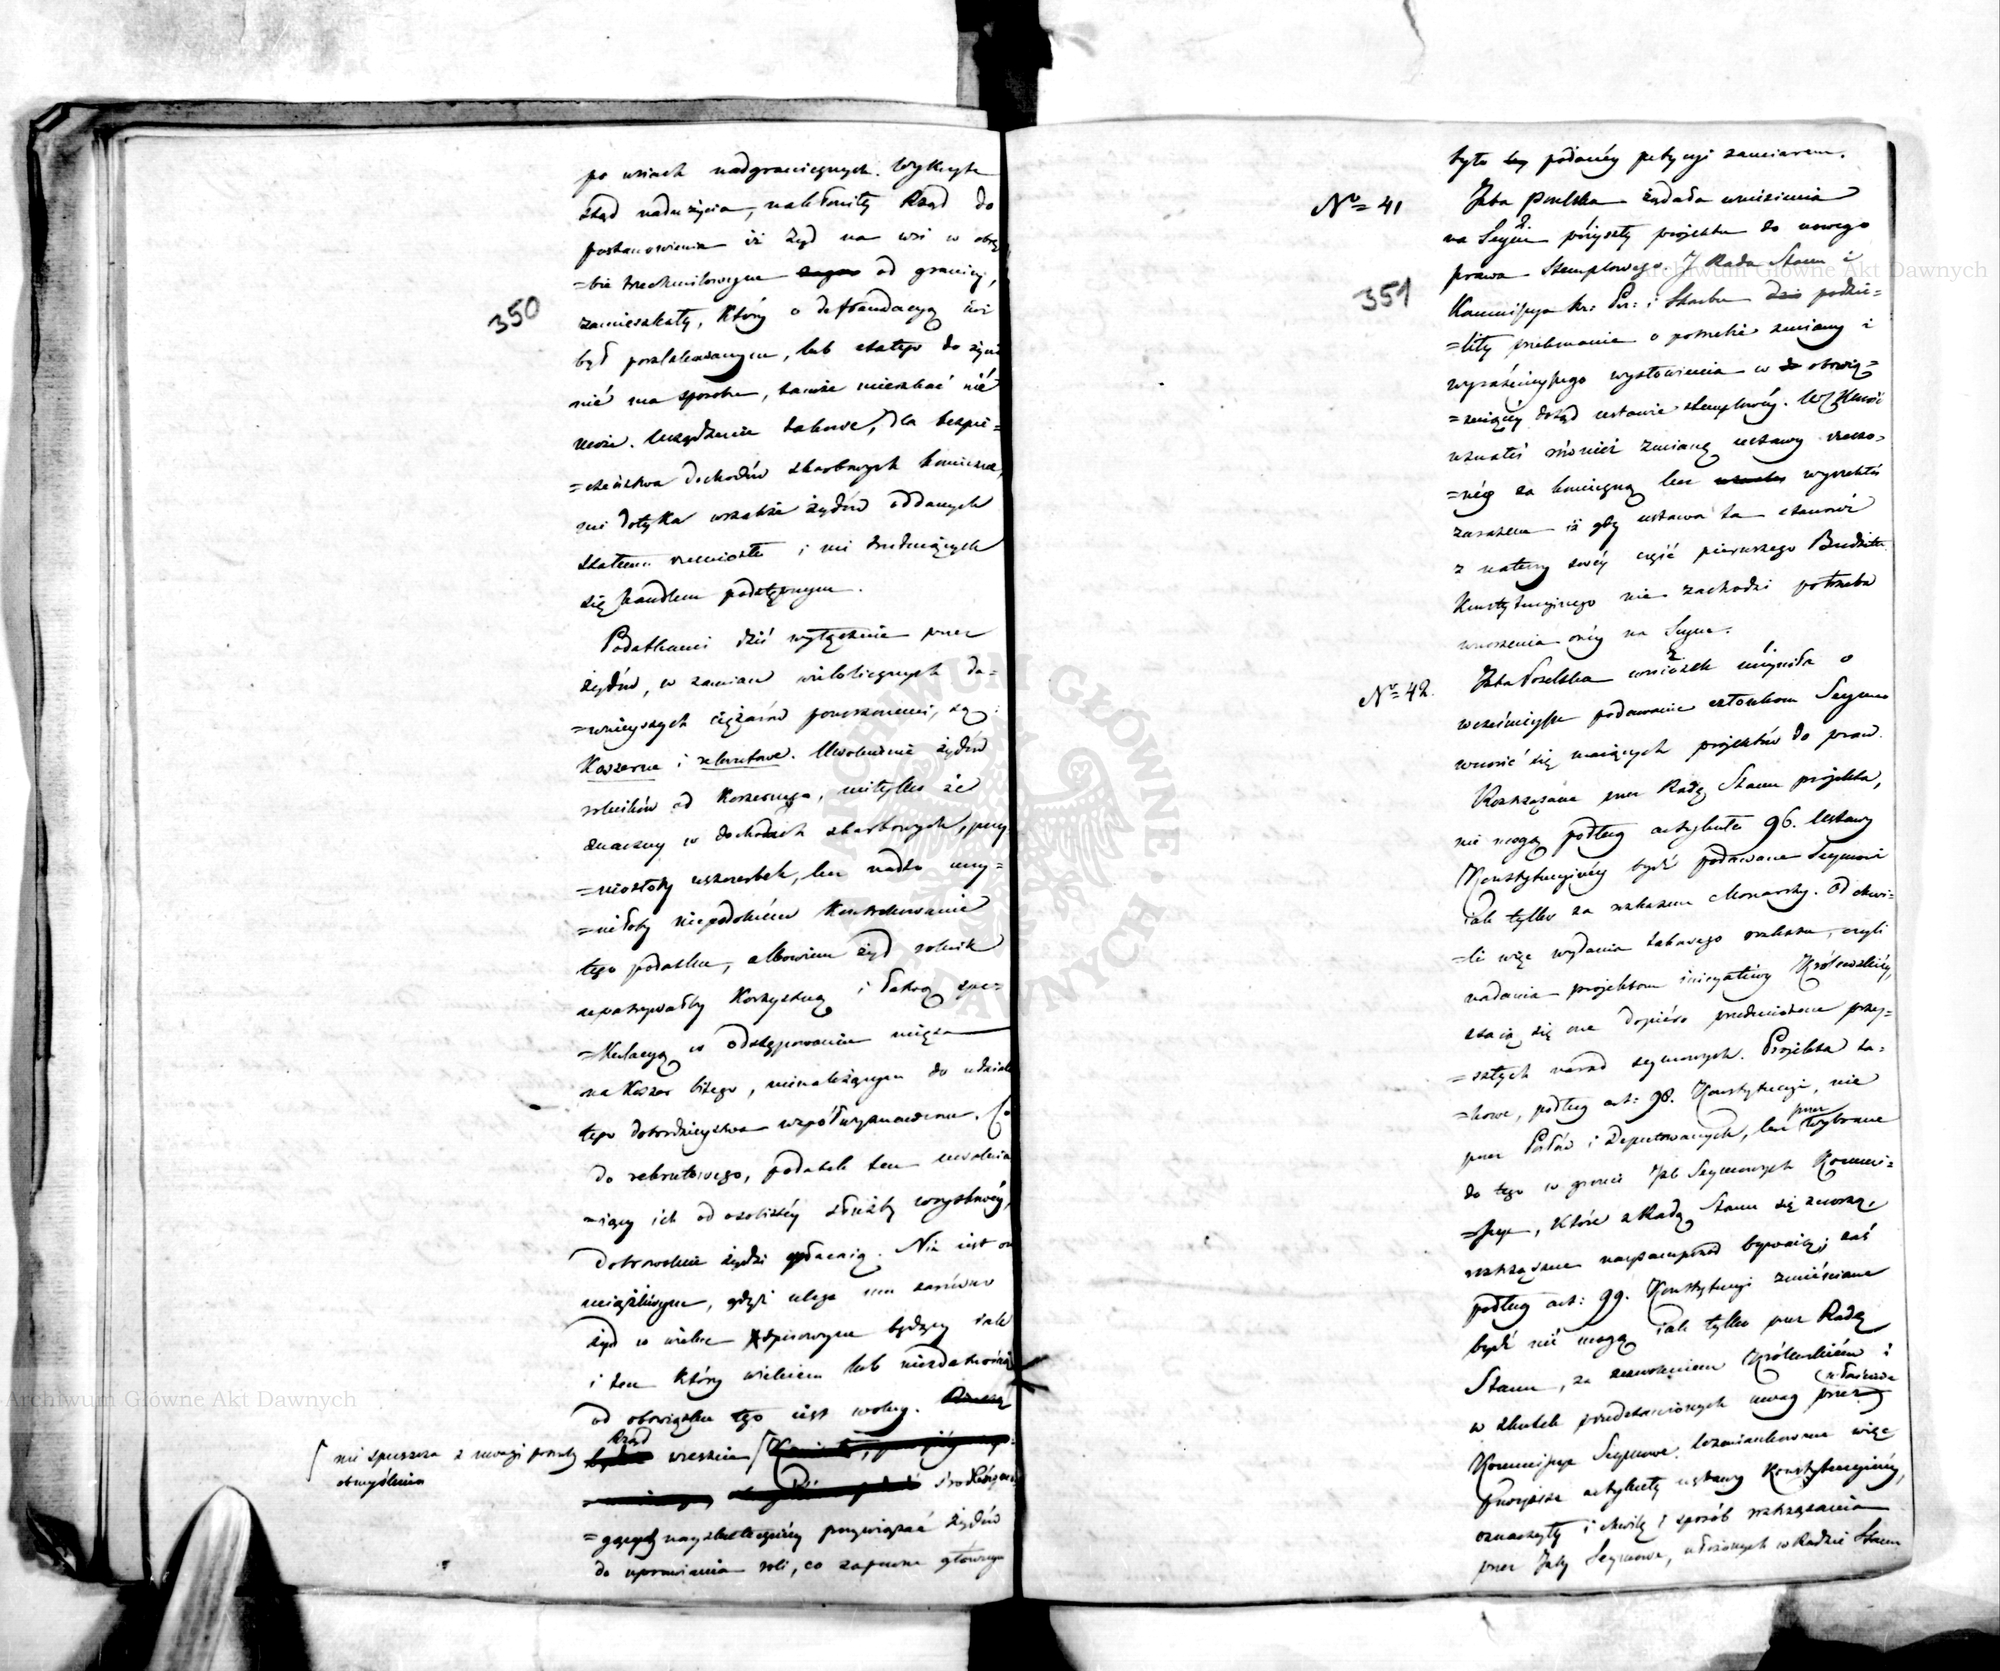 po wsiach nadgranicznych. Wykryte
ztąd nadużycia, nakłoniły Rząd do
postanowienia iż Żyd na wsi w obrę
=bie trzechmilowym od granicy,
350
zamieszkały, który o defraudacyą iuż
był poszlakowanym, lub stałego do życia
nié ma sposobu, tamże mieszkać nié
może. Urządzenie takowe, dla bezpie-
=czeństwa dochodów skarbowych konieczne,
nie dotyka wszakże żydów oddanych
stałemu rzemiosłu i nie trudniących
się handlem podstępnym.
Podatkami dziś wyłącznie przez
żydów, w zamian wielolicznych da-
=wnieyszych ciężarów ponoszonemi, są:
Koszerne i rekrutowe. Uwolnienie żydów
rolników od Koszernego, nietylko że
znaczny w dochodach skarbowych, przy
=niosłoby uszczerbek, lecz nadto uczy=
=niłoby niepodobném kontrolowanie
tego podatku, albowiem żyd rolnik
upatrywałby korzystną i łatwą spe=
=kulacyą w odstępowaniu mięsa
na koszer bitego, nienależącym do udziału
tego dobrodzieystwa współwyznawcom. Co
do rekrutowego, podatek ten uwalnia
=iący ich od osobistéy służby woyskowéy,
dobrowolnie żydzi płacaią. Nie iest on
uciążliwym, gdyż ulega mu zarówno
żyd w wieku spisowym będący iak
i ten który wiekiem lub niezdatnością
od obowiązku tego iest wolny.
Rząd
wreszcie
nie spuszcza z uwagi potrzeby
obmyślenia
nayskuteczniéy przywiązać żydów
do uprawiania roli, co zapewne głównym
było podanéy petycyi zamiarem.
No= 41
Izba Poselska żądała wniesienia
na Seym przyszły projektu do nowego
prawa Stemplowego. Rada Stanu i
351
Kommissya Rz: Pr: i Skarbu podzie=
=liły przekonanie o potrzebie zmiany i
wyraźnieyszego wysłowienia w obowią=
=zuiącéy dotąd ustawie stemplowéy. W. K. Mość
uznałeś również zmianę ustawy rzeczo=
=néy za konieczną lecz wyrzekłeś
zarazem iż gdy ustawa ta stanowi
z natury swéy część pierwszego Budżetu
Konstytucyinego nie zachodzi potrzeba
wnoszenia onéy na Seym.
No= 42.
Izba Poselska wniosek uczyniła o
wcześnieysze podawanie członkom Seymu
wnosić się maiących projektów do praw.
Roztrząsane przez Radę Stanu projekta,
nie mogą podług artykułu 96. Ustawy
Konstytucyinéy bydź podawane Seymowi
iak tylko za rozkazem Monarchy. Od chwi=
=li więc wydania takowego rozkazu, czyli
nadania projektom inicyatywy Królewskiéy,
staią się one dopiéro przedmiotem przy=
=szłych narad seymowych. Projekta ta=
=kowe, podług art: 98. Konstytucyi, nie
przez Posłów i Deputowanych, lecz przez wybrane
do tego w gronie Izb Seymowych Kommi=
=ssye, które z Radą Stanu się znoszą,
roztrząsane nayprzód bywaią; zaś
podług art: 99. Konstytucyi zmieniane
bydź nié mogą iak tylko przez Radę
Stanu, za zezwoleniem Królewskiém i
w skutek przedstawionych uwag przez właściwe
Kommissye Seymowe. Wzmiankowane więc
powyższe artykuły ustawy Konstytucyinéy,
oznaczyły i chwilę i sposób roztrząsania
przez Izby Seymowe, ułożonych w Radzie Stanu
Archiwum Główne Akt Dawnych
Archiwum Główne Akt Dawnych
ARCHIWUM GŁÓWNE AKT DAWNYCH